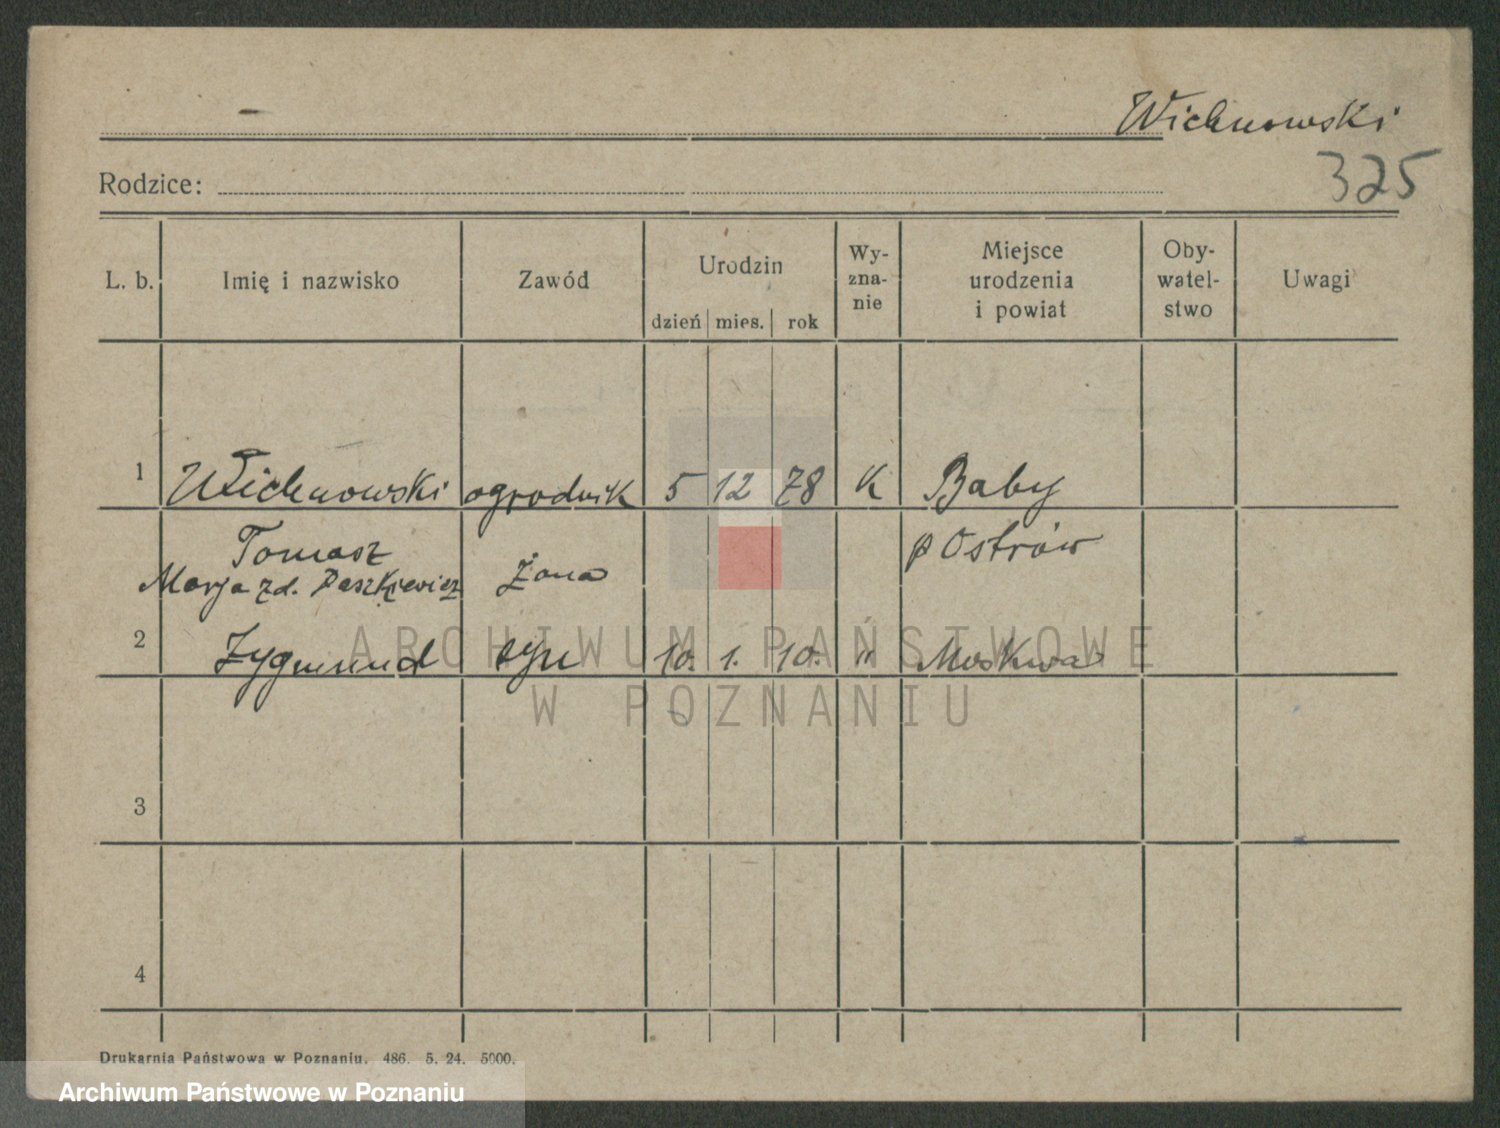 Wichnowski
325
Rodzice:
L. b. Imię i nazwisko Zawód Urodzin dzień mies. rok Wy-zna-nie Miejsce urodzenia i powiat Oby-watel-stwo Uwagi
1 Wichnowski ogrodnik 5 12 78 K Baby
Tomasz p Ostrów
Marja zd. Paszkiewicz żona
2 Zygmund syn 10. 1. 10. " Moskwa
3
4
Drukarnia Państwowa w Poznaniu. 486. 5. 24. 5000.
ARCHIWUM PAŃSTWOWE
W POZNANIU
Archiwum Państwowe w Poznaniu